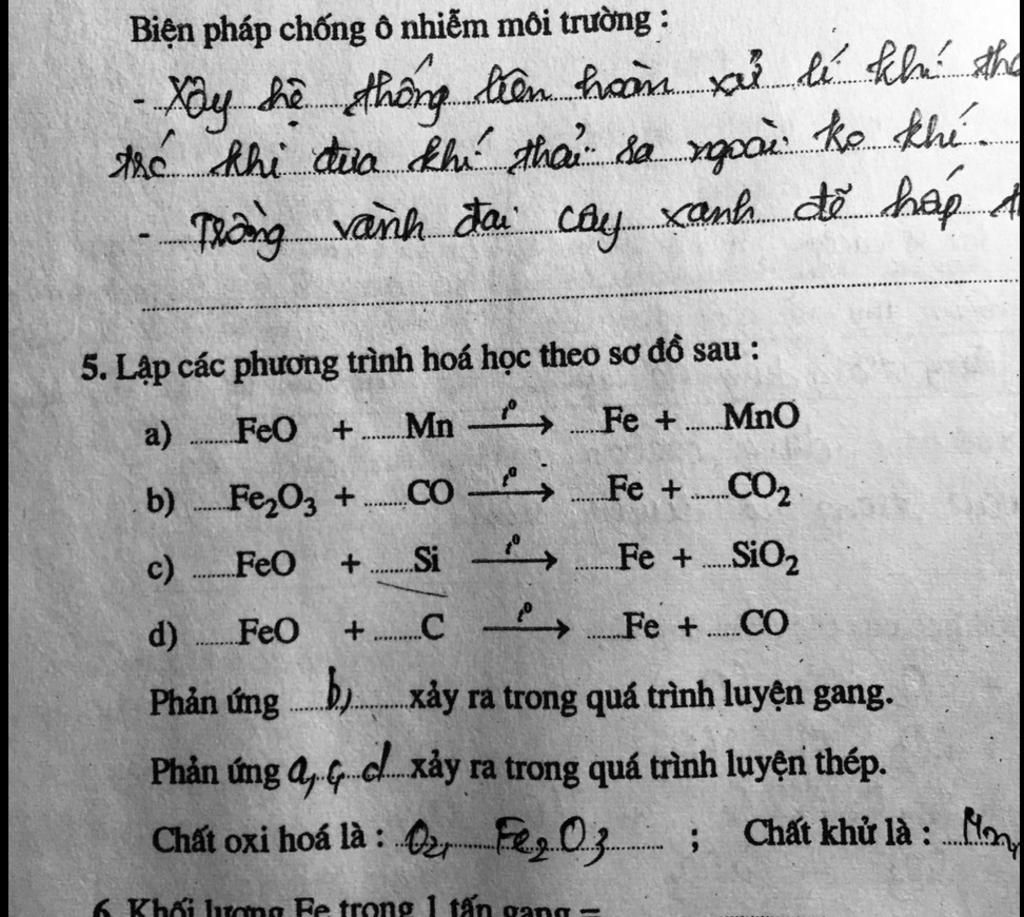 Biện pháp chống ô nhiễm môi trường :
- Xây hệ thống liên hoàn xử lí khí
trc khi đưa khí thải ra ngoài ko khí.
- Trồng vành đai cây xanh để hấp
5. Lập các phương trình hoá học theo sơ đồ sau :
a) ......FeO + ......Mn —t⁰→ ......Fe + ......MnO
b) ......Fe₂O₃ + ......CO —t⁰→ ......Fe + ......CO₂
c) ......FeO + ......Si —t⁰→ ......Fe + ......SiO₂
d) ......FeO + ......C —t⁰→ ......Fe + ......CO
Phản ứng ......b)......xảy ra trong quá trình luyện gang.
Phản ứng a, c, d...xảy ra trong quá trình luyện thép.
Chất oxi hoá là : O₂, Fe₂O₃ ; Chất khử là : Mn,
6. Khối lượng Fe trong 1 tấn gang =